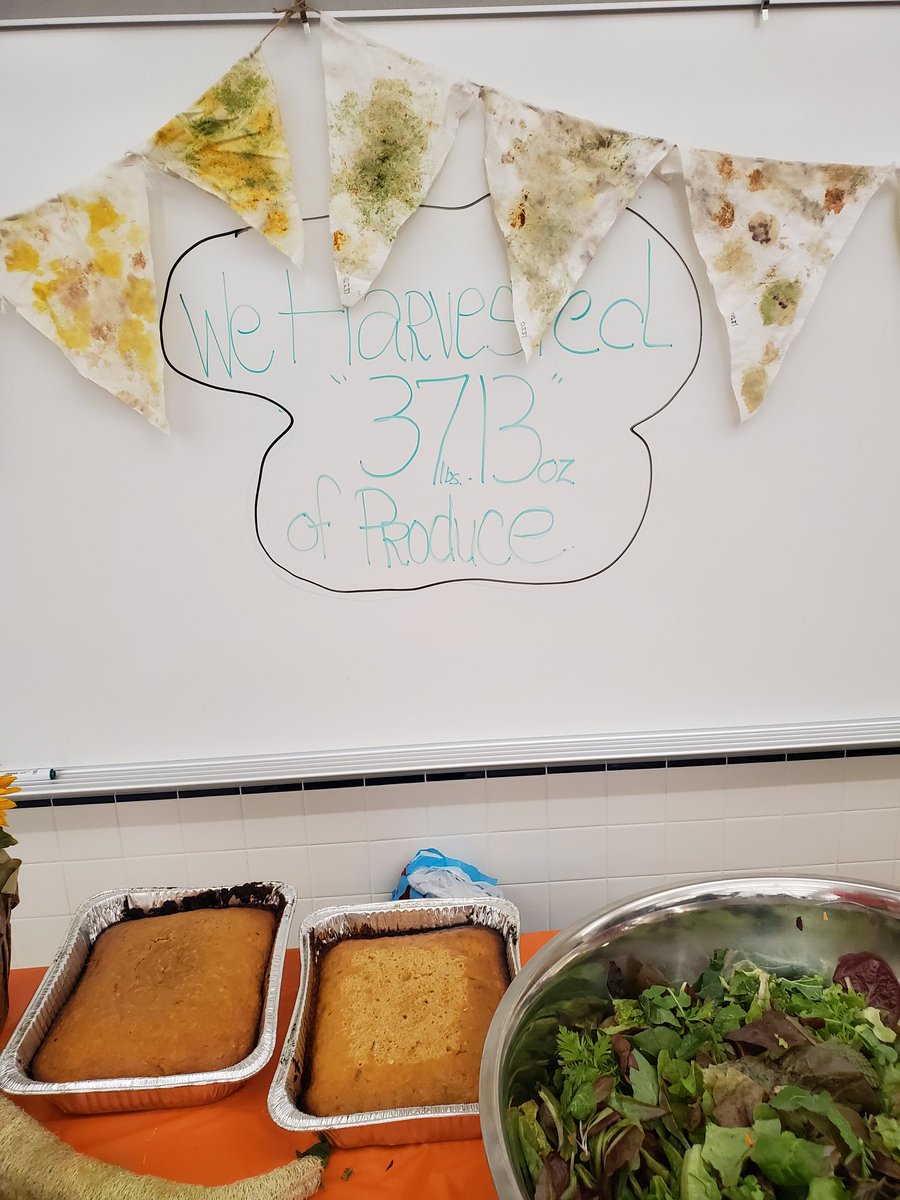 We Harvested
"37 lbs. 13 oz"
of Produce